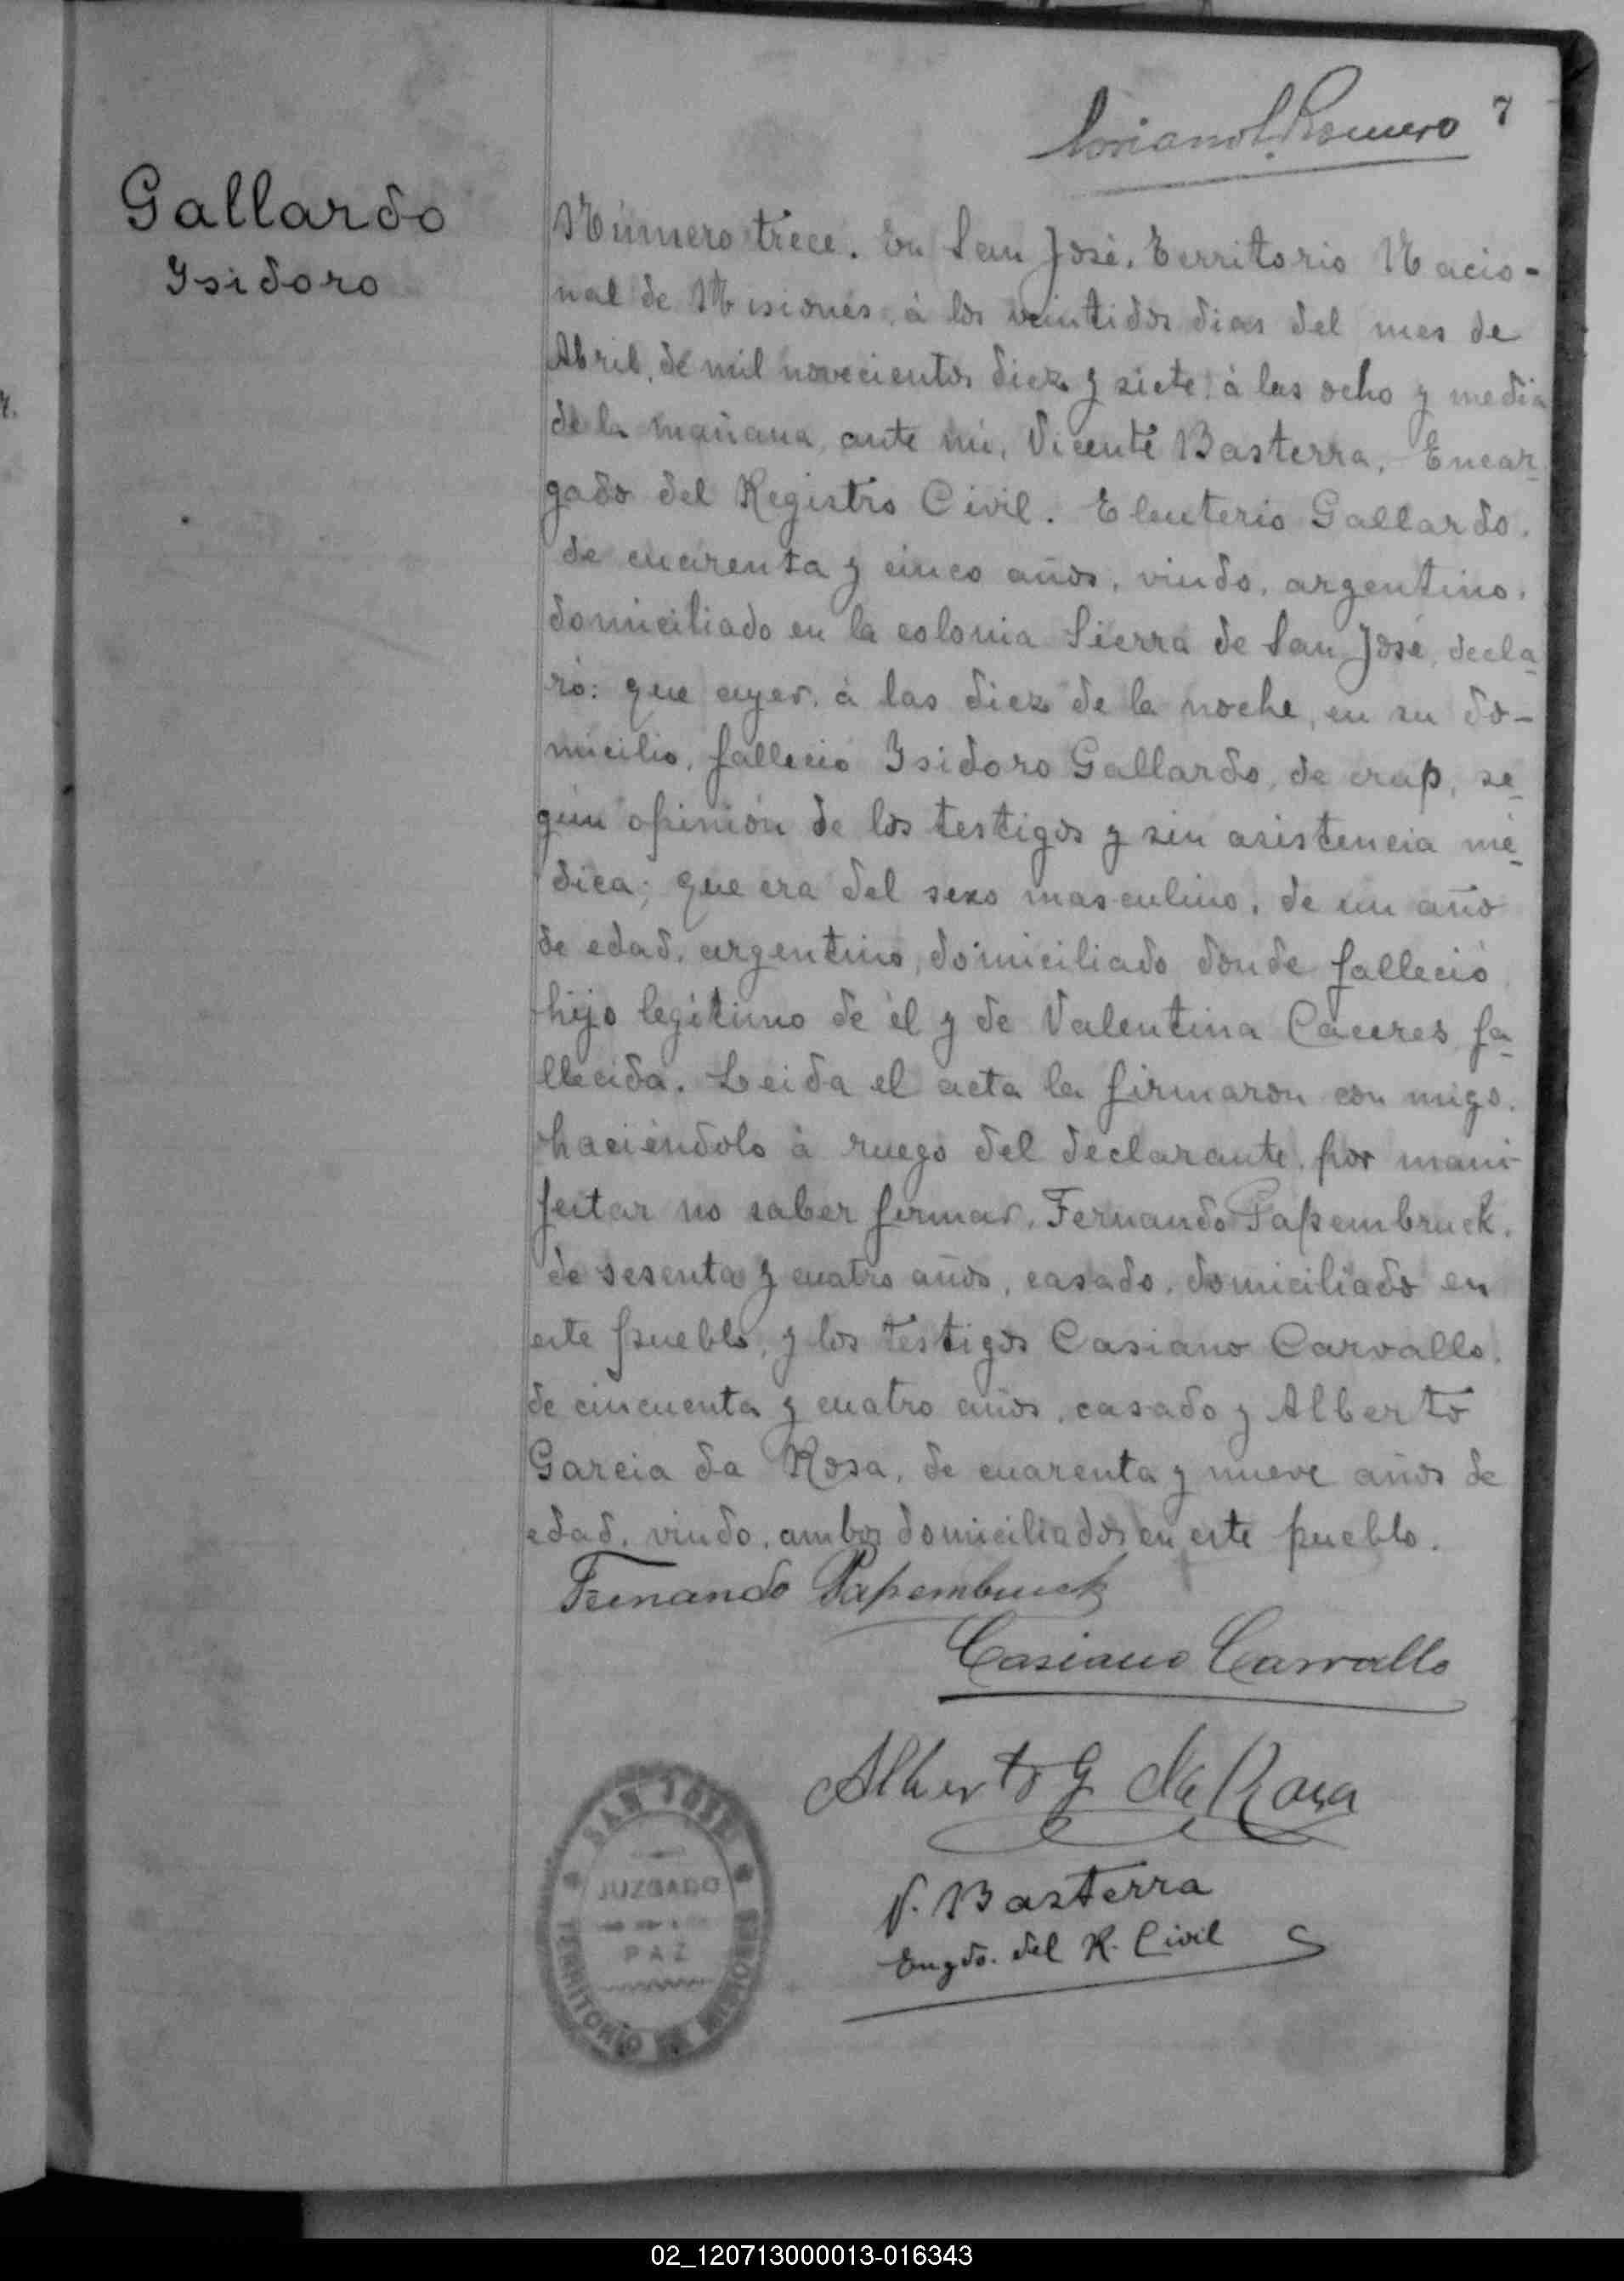 Romero 7
Gallardo
Isidoro
Número trece. En San José, Territorio Nacio-
nal de Misiones, à los veintidos dias del mes de
Abril, de mil novecientos diez y siete, à las ocho y media
de la mañana, ante mi, Vicente Basterra, Encar-
gado del Registro Civil. Eleuterio Gallardo,
de cuarenta y cinco años, viudo, argentino,
domiciliado en la colonia Sierra de San José, decla-
ró: que ayer, à las diez de la noche, en su do-
micilio, falleció Isidoro Gallardo, de crup, se-
gún opinión de los testigos y sin asistencia mé-
dica; que era del sexo masculino, de un año
de edad, argentino, domiciliado donde falleció
hijo legítimo de él y de Valentina Caceres fa-
llecida. Leida el acta la firmaron con migo,
haciéndolo à ruego del declarante, por mani-
festar no saber firmar, Fernando Papembruck,
de sesenta y cuatro años, casado, domiciliado en
este pueblo, y los testigos Casiano Carvallo,
de cincuenta y cuatro años, casado y Alberto
Garcia da Rosa, de cuarenta y nueve años de
edad, viudo, ambos domiciliados en este pueblo.
Fernando Papembruck
Casiano Carvallo
Alberto G da Rosa
V. Basterra
Engdo. del R. Civil
SAN JOSE
JUZGADO
PAZ
TERRITORIO DE MISIONES
02_120713000013-016343